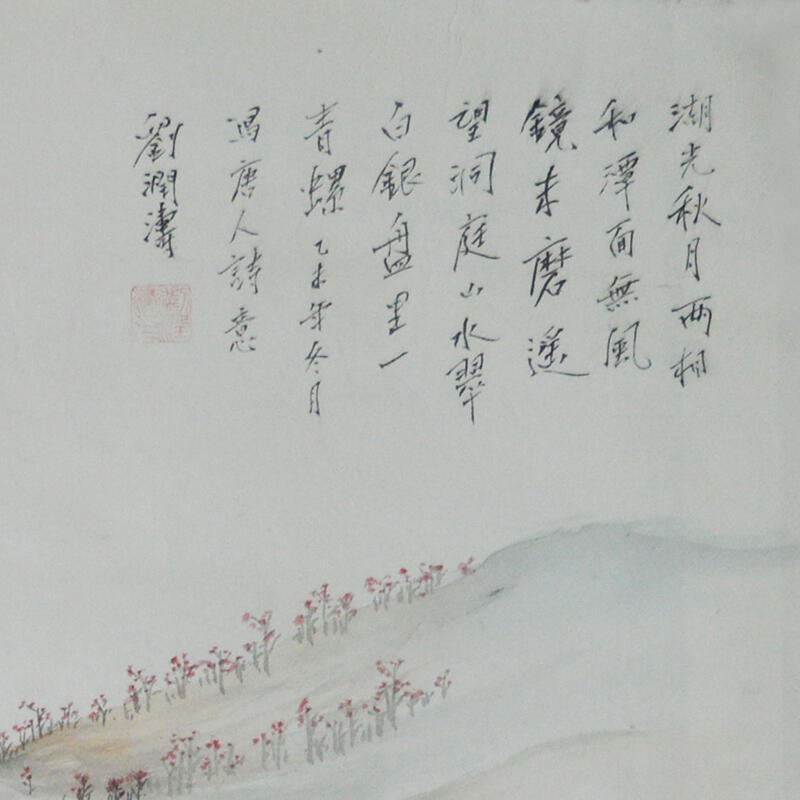 湖光秋月兩相
和潭面無風
鏡未磨遥
望洞庭山水翠
白銀盘里一
青螺乙未年冬月
寫唐人詩意
劉潤濤